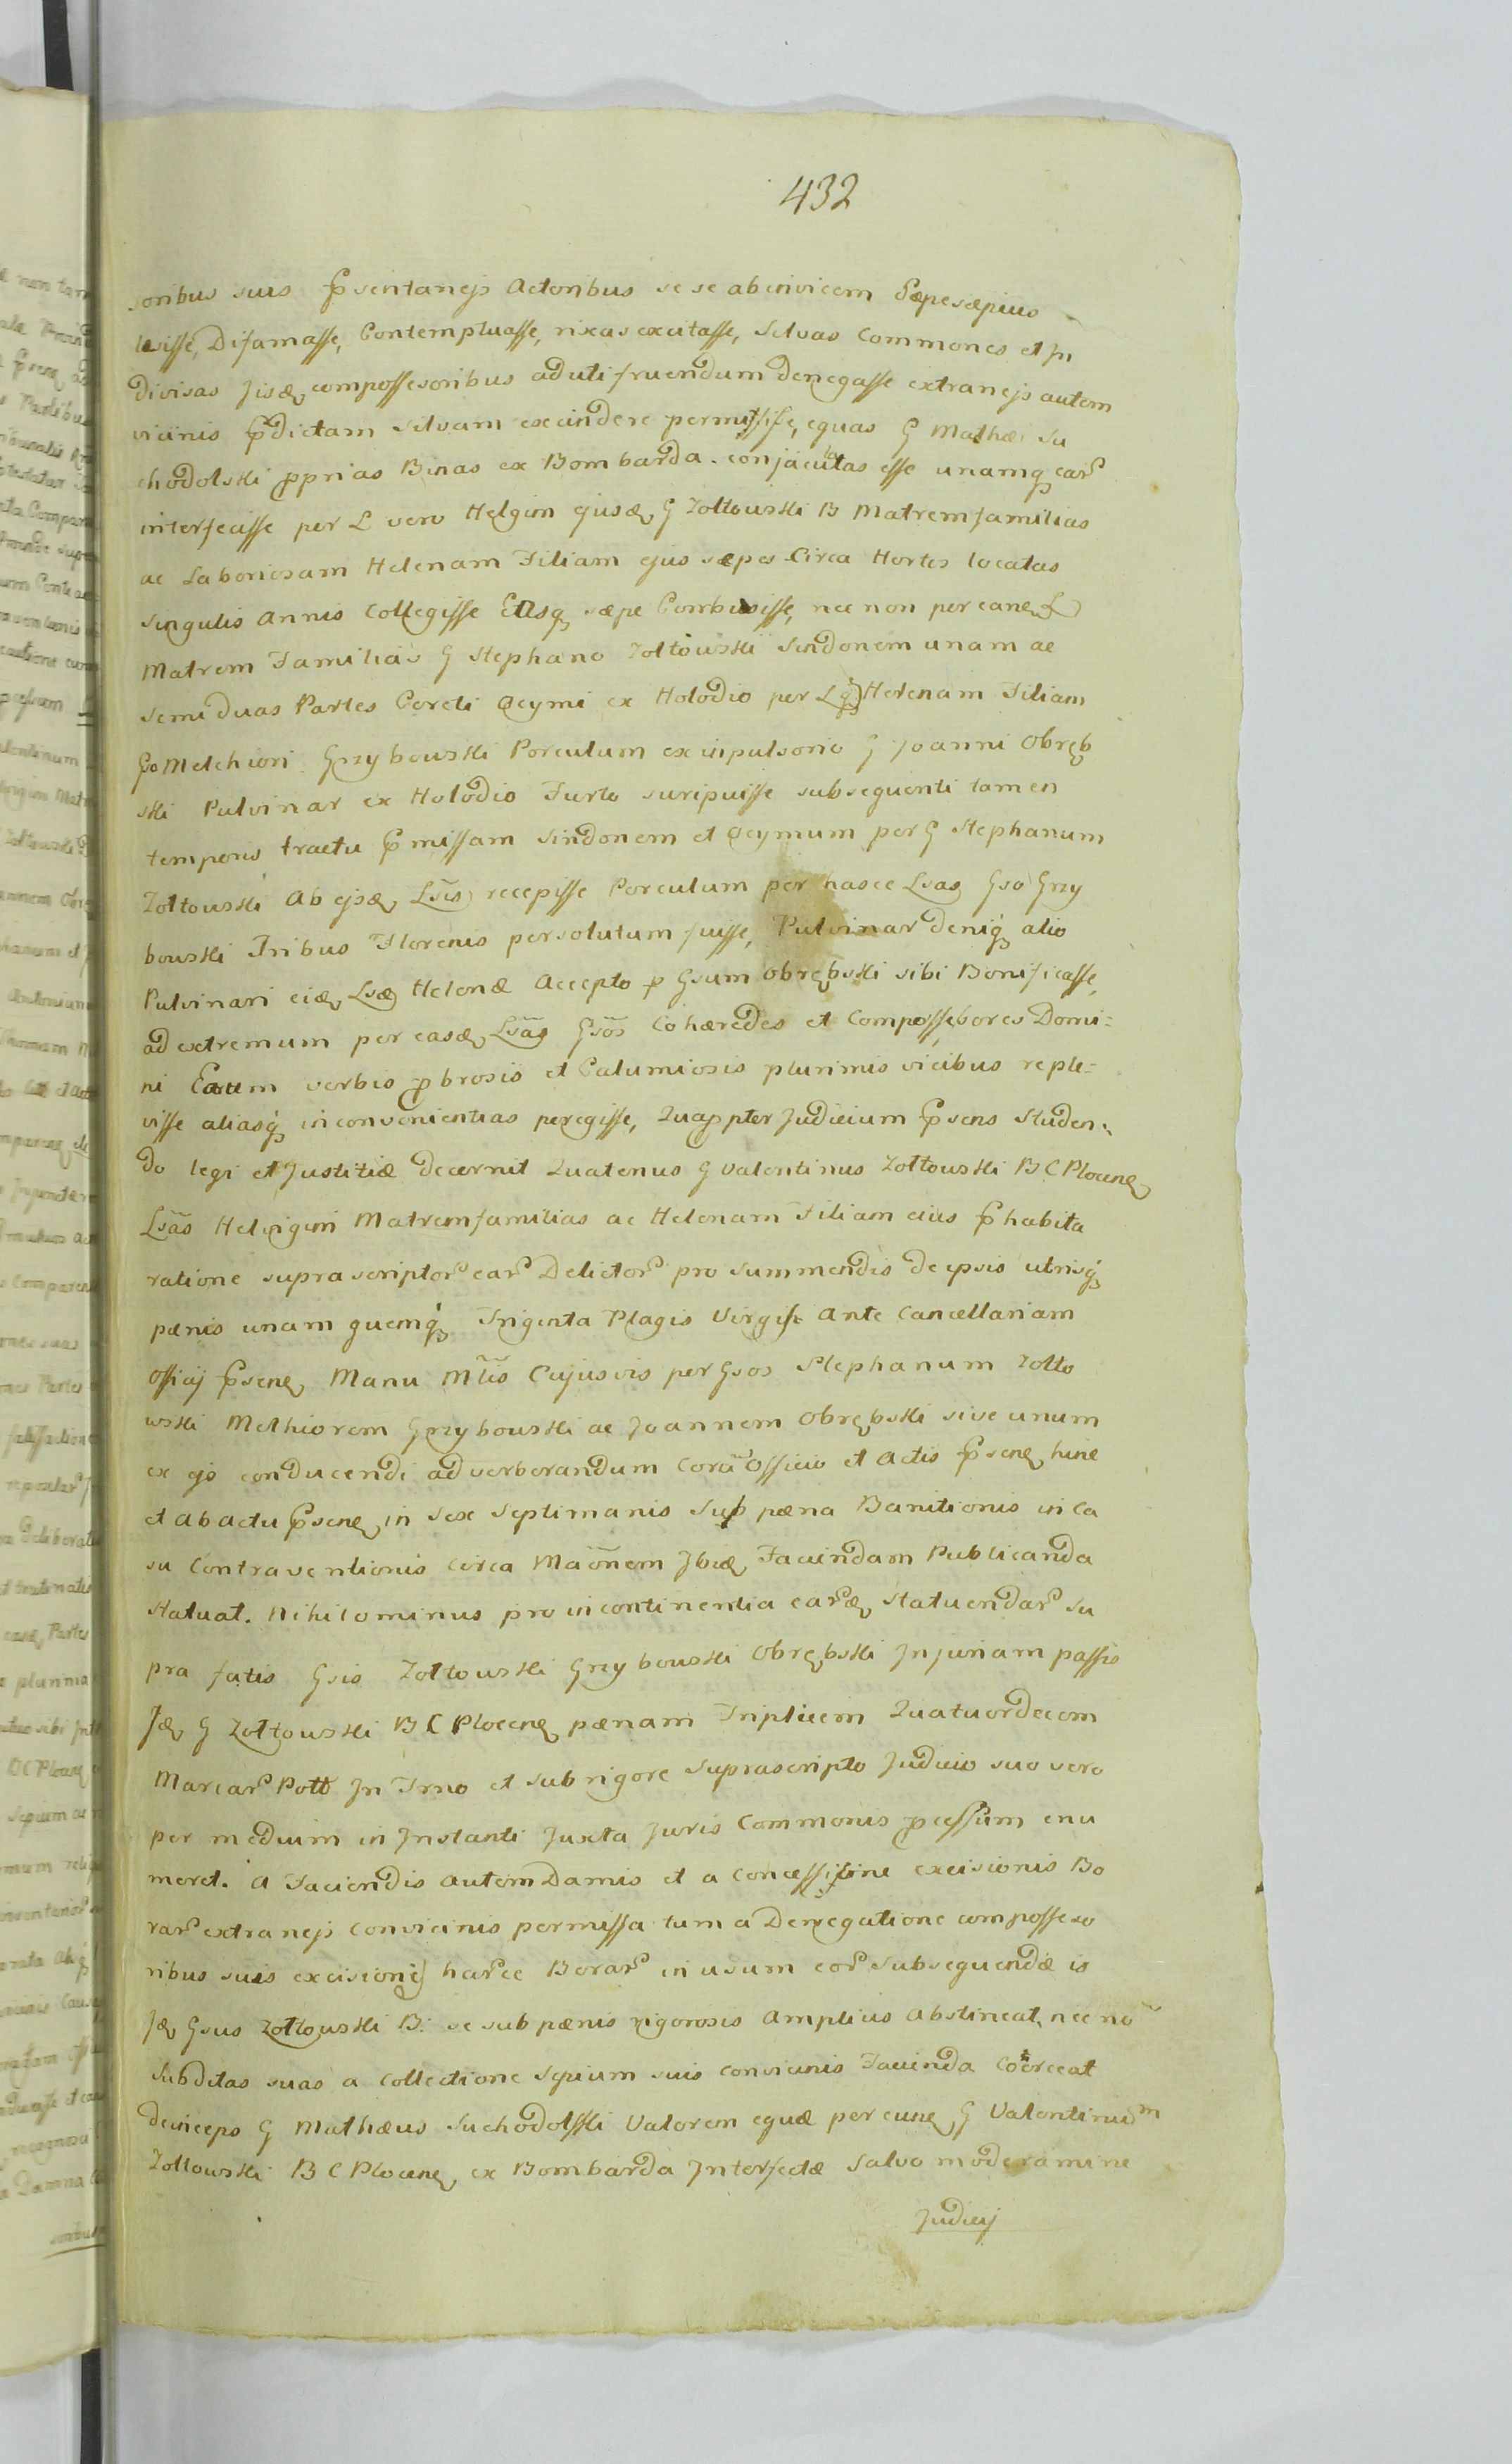 432
soribus suis Psentanejs Actoribus se se abinvicem Sæpesæpius
læsisse, Difamasse, Contempluasse, rixas excitasse, Silvas Commones et In
divisas Jisdē compossesoribus ad uti fruendum denegasse extranejs autem
vicinis Pdictam Silvam excindere permisisse, equas G Mathæi Su
chodolski pprias Binas ex Bombarda conjaculatas esse unamq ear
interfecisse per L vero Helgim ejusdē G Zołtowski B Matremfamilias
ac Laboriosam Helenam Filiam ejus sæpes Circa Hortes locatas
singulis Annis Collegisse Easq sæpe Combusisse, nec non per eandē L
Matrem Familias G Stephano Zołtowski Sindonem unam ac
semi duas Partes Coreti Ocymi ex Holodio per L q Helenam Filiam
Go Melchiori Grzybowski Porculum ex inpulsorio G Joanni Obręb
ski Pulvinar ex Holodio Furto suripuisse subsequenti tamen
temporis tractu Pmissam Sindonem et Ocymum per G Stephanum
Zołtowski Ab ejsdē Lsis recepisse Porculum per hasce Lsas Gso Grzy
bowski Tribus Florenis persolutum fuisse, Pulvinar deniq alio
Pulvinari eidē Lsæ Helenæ Accepto p Gsum Obrębski sibi Bonificasse,
ad extremum per easdē Lsas Gsos Cohæredes et Compossessores Domi=
ni Earum verbis pbrosis et Calumiosis plurimis vicibus reple=
visse aliasq inconvenientias peregisse, Quappter Judicium Psens Studen=
do legi et Justitiæ decernit Quatenus G Valentinus Zołtowski B C Plocenē
Lsas Helvigim Matremfamilias ac Helenam Filiam eius Phabita
ratione suprascriptor ear Delictor pro summendis de ipsis utrisq
pænis unam quemq Triginta Plagis Virgis Ante Cancellariam
Officij Psenē Manu Mltis Cujusvis per Gsos Stephanum Zołto
wski Melhiorem Grzybowski ac Joannem Obrębski sive unum
ex ejs conducendi ad verberandum Corā Officio et Actis Psenē hinc
et ab actu Psenē in Sex Septimanis Sub pæna Banitionis in Ca
su Contraventionis Circa Maōnem Ibidē Faciendam Publicanda
Statuat. Nihilominus pro incontinentia eardē Statuendar Su
pra fatis Gsis Zołtowski Grzybowski Obrębski Injuriam passis
Jdē G Zołtowski B C Plocenē pænam Triplicem Quatuordecem
Marcar Poll In Trno et sub rigore Suprascripto Judicio suo vero
per medium in Instanti Juxta Juris Commonis pcessum enu
meret. A Faciendis autem Damis et a Concessione excisionis Bo
rar extranejs Convicinis permissa tum a Denegatione compossesso
ribus suis excisionis harce Borar in usum eor Subsequendæ is
Jdē Gsus Zołtowski B. se sub pænis rigorosis Amplius Abstineat, nec nō
Subditas suas a Collectione Sepium suis convicinis Facienda Coerceat
deinceps G Mathæus Suchodolski Valorem equæ per eunē G Valentinum
Zołtowski B C Plocenē ex Bombarda Interfectæ Salvo moderamine
Judicij